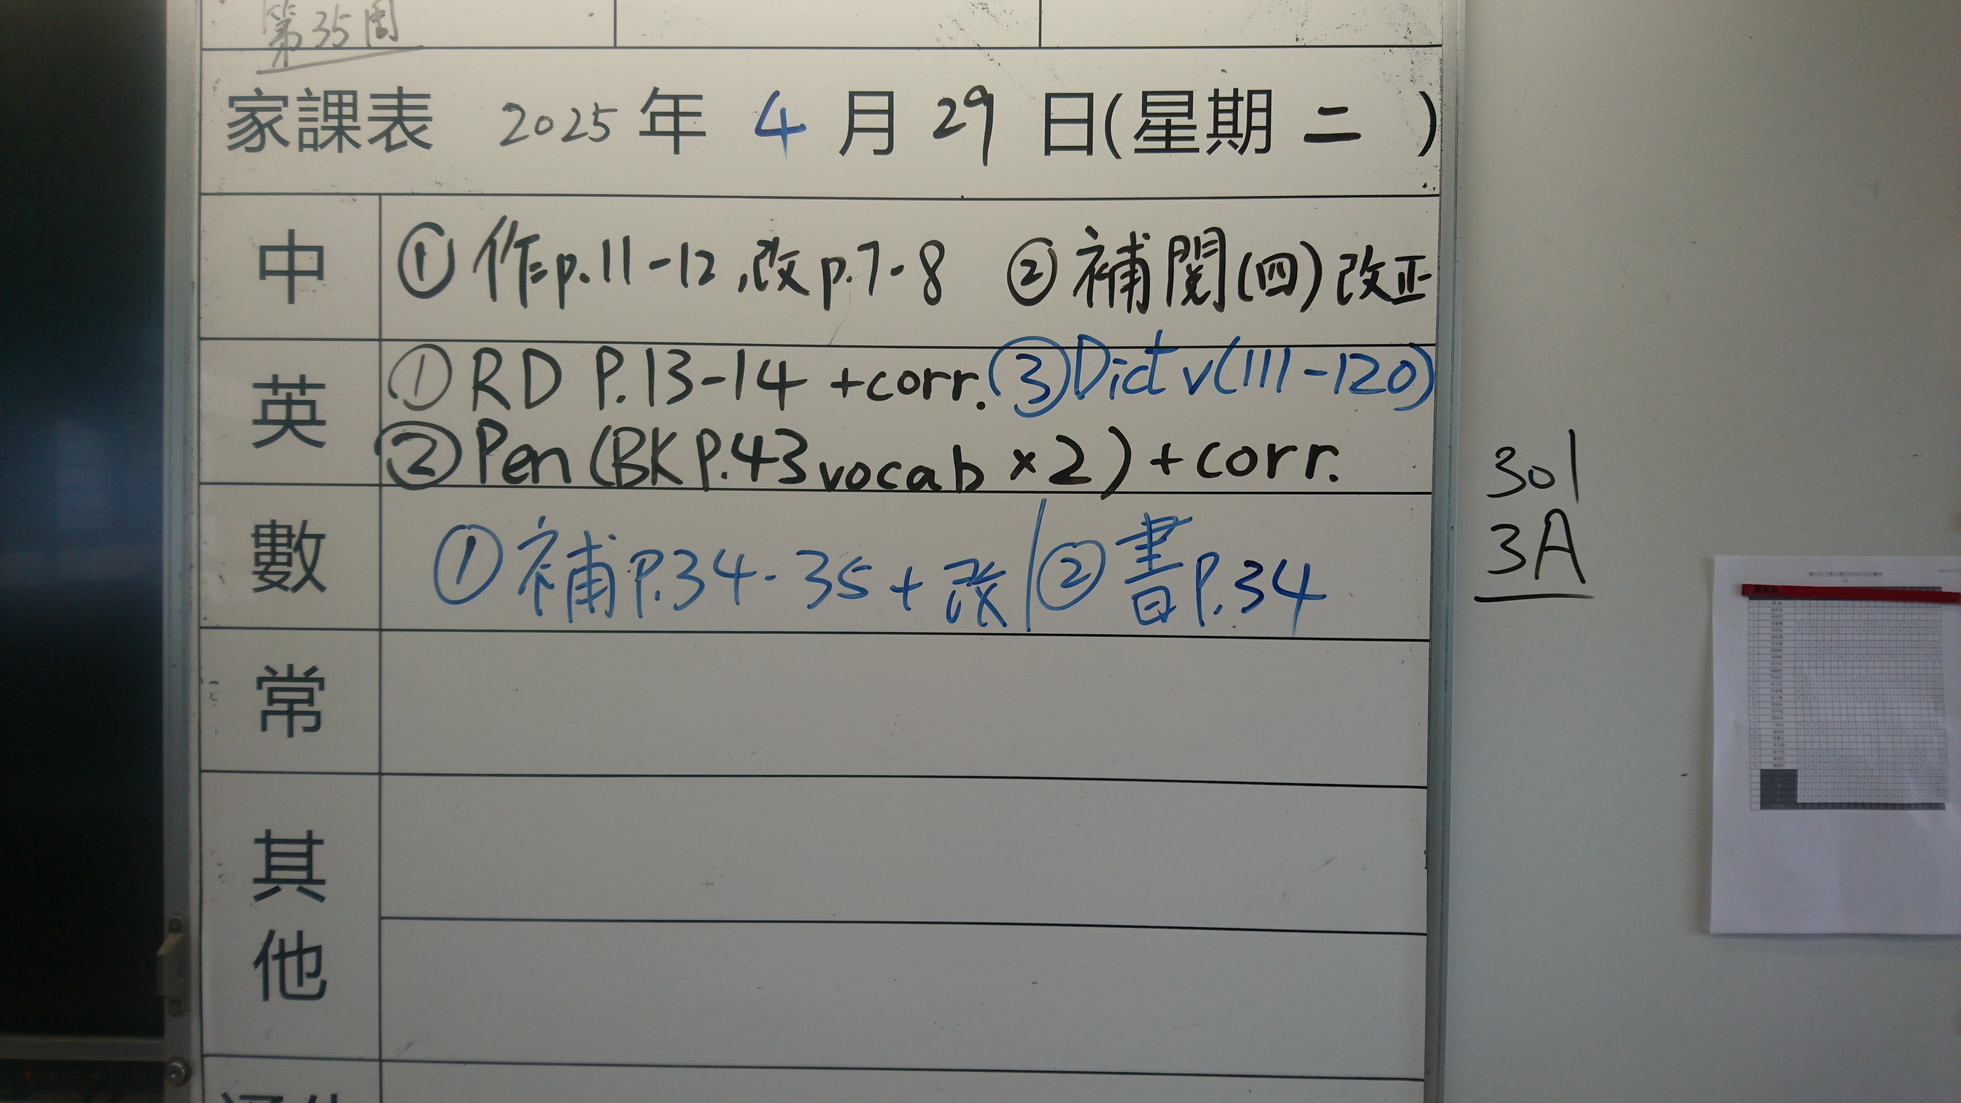 第35周
家課表 2025 年 4 月 29 日(星期 二 )
中 ① 作p.11-12,改p.7-8 ② 補閱(四)改正
英 ① RD P.13-14 +corr. ③ Dict v(111-120)
② Pen (BK P.43 vocab ×2) + corr.
數 ① 補P.34-35 + 改 / ② 書P.34
常
其他
301
3A